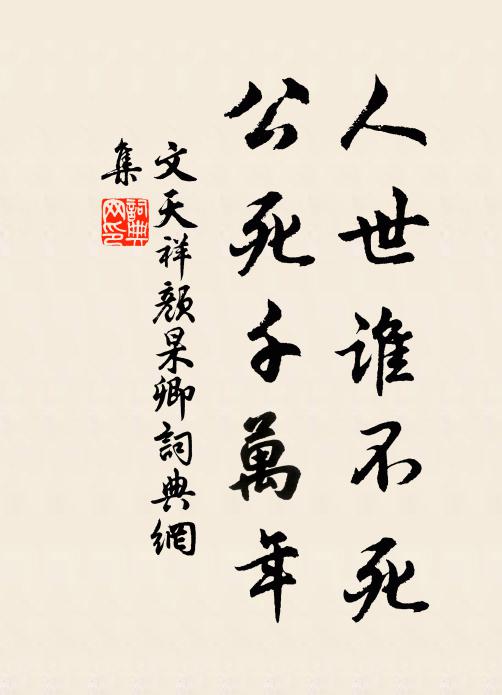 人世谁不死
公死千萬年
文天祥顏杲卿詞典網
集
詞典
网印